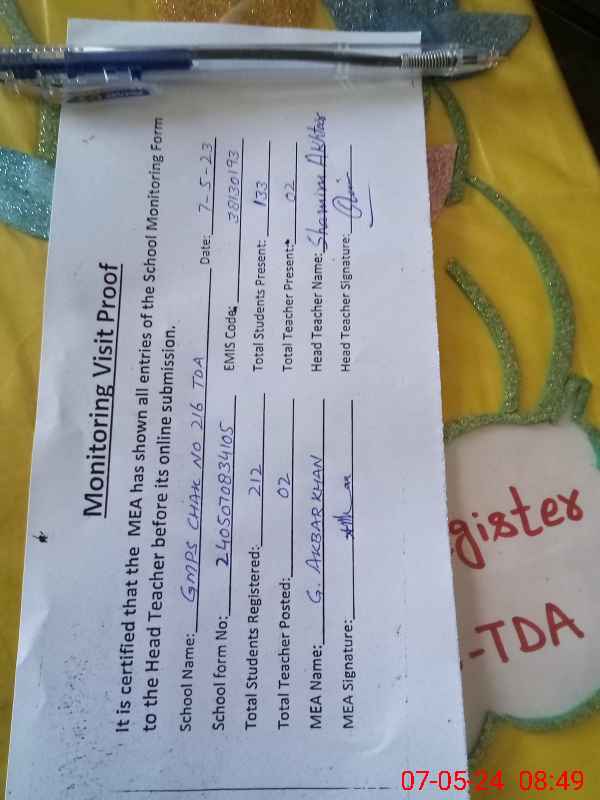 Monitoring Visit Proof
It is certified that the MEA has shown all entries of the School Monitoring Form
to the Head Teacher before its online submission.
School Name: GMPS CHAK NO 216 TDA Date: 7-5-23
School form No: 2405070834105 EMIS Code: 38130193
Total Students Registered: 212 Total Students Present: 133
Total Teacher Posted: 02 Total Teacher Present: 02
MEA Name: G. AKBAR KHAN Head Teacher Name: Shamim Akhtar
MEA Signature: Head Teacher Signature:
gister
-TDA
07-05-24 08:49